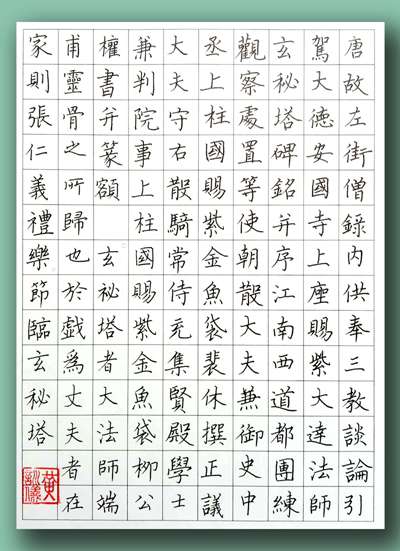 唐故左街僧錄內供奉三教談論引
駕大德安國寺上座賜紫大達法師
玄秘塔碑銘并序江南西道都團練
觀察處置等使朝散大夫兼御史中
丞上柱國賜紫金魚袋裴休撰正議
大夫守右散騎常侍充集賢殿學士
兼判院事上柱國賜紫金魚袋柳公
權書并篆額 玄祕塔者大法師端
甫靈骨之所歸也於戲爲丈夫者在
家則張仁義禮樂節臨玄秘塔
黃